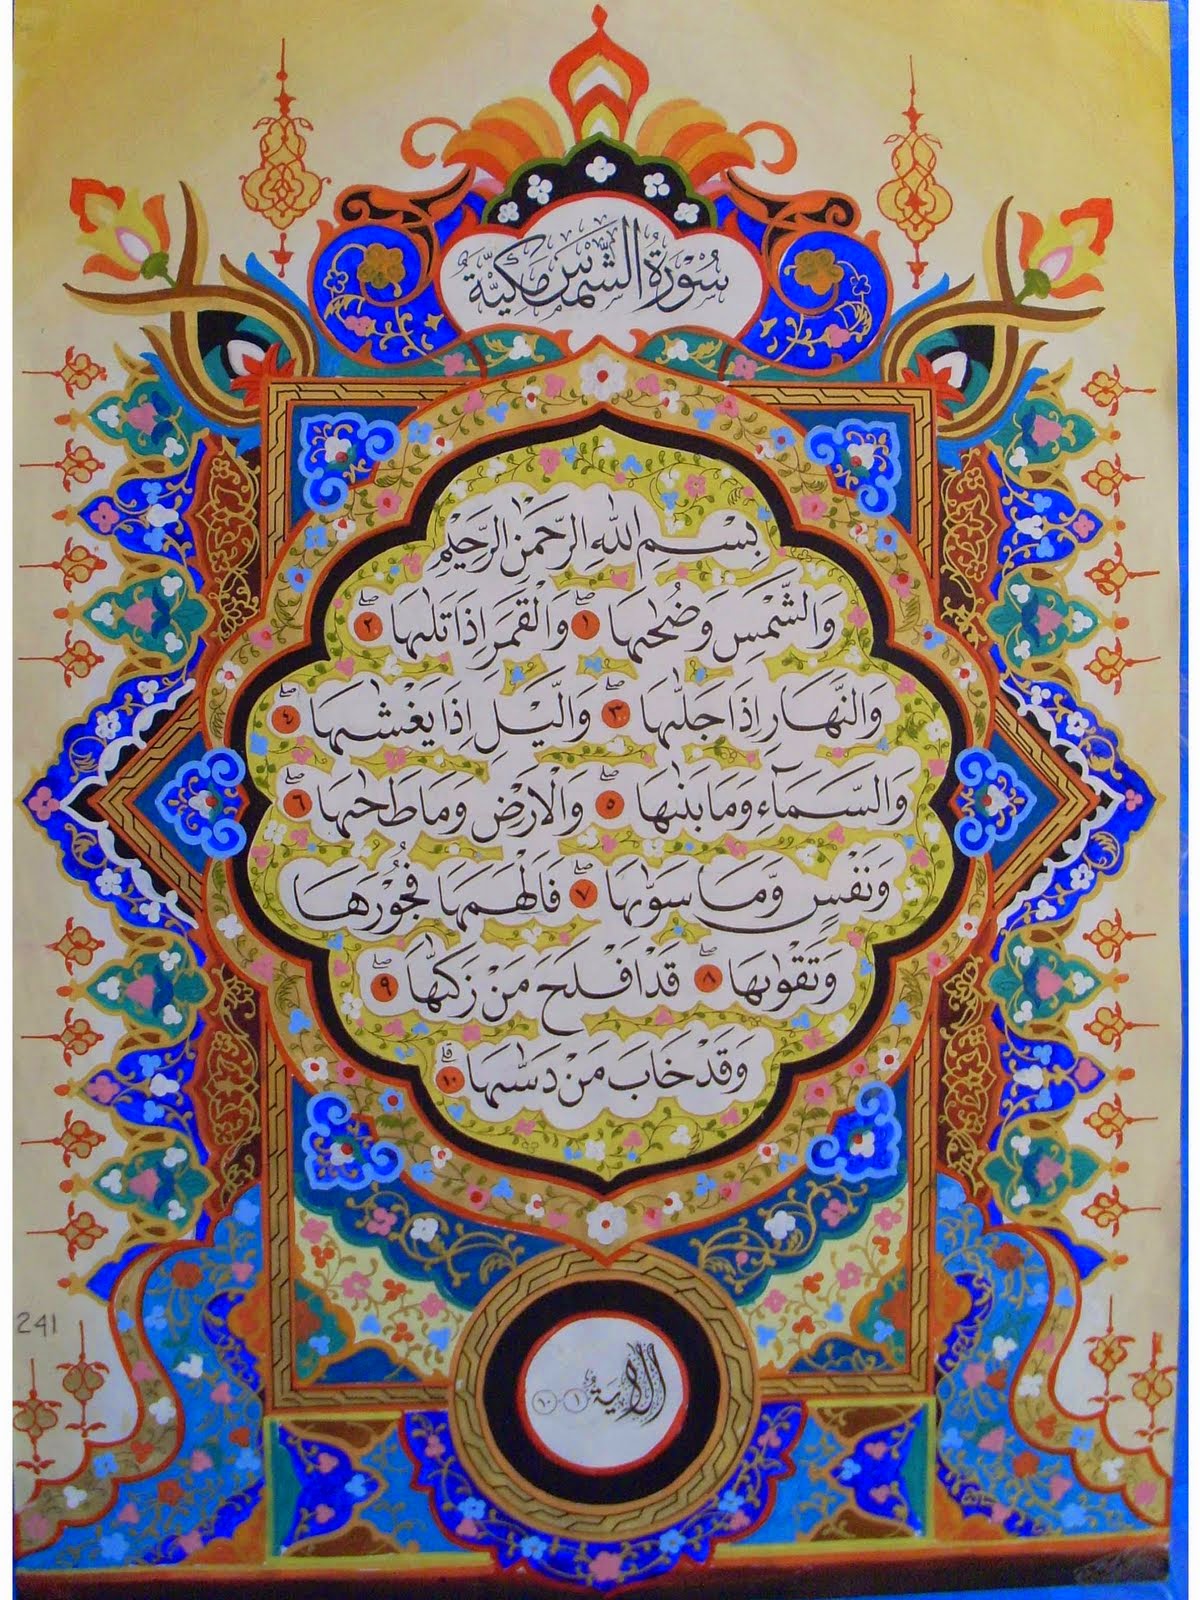 سُوْرَةُ الشَّمْسِ مَكِّيَّةٌ
بِسْمِ اللهِ الرَّحْمٰنِ الرَّحِيْمِ
وَالشَّمْسِ وَضُحٰىهَا ۖ ١ وَالْقَمَرِ اِذَا تَلٰىهَا ۖ ٢
وَالنَّهَارِ اِذَا جَلّٰىهَا ۖ ٣ وَالَّيْلِ اِذَا يَغْشٰىهَا ۖ ٤
وَالسَّمَآءِ وَمَا بَنٰىهَا ۖ ٥ وَالْاَرْضِ وَمَا طَحٰىهَا ۖ ٦
وَنَفْسٍ وَّمَا سَوّٰىهَا ۖ ٧ فَاَلْهَمَهَا فُجُوْرَهَا
وَتَقْوٰىهَا ۖ ٨ قَدْ اَفْلَحَ مَنْ زَكّٰىهَا ۖ ٩
وَقَدْ خَابَ مَنْ دَسّٰىهَا ۗ ١٠
241
الاية ١-١٠